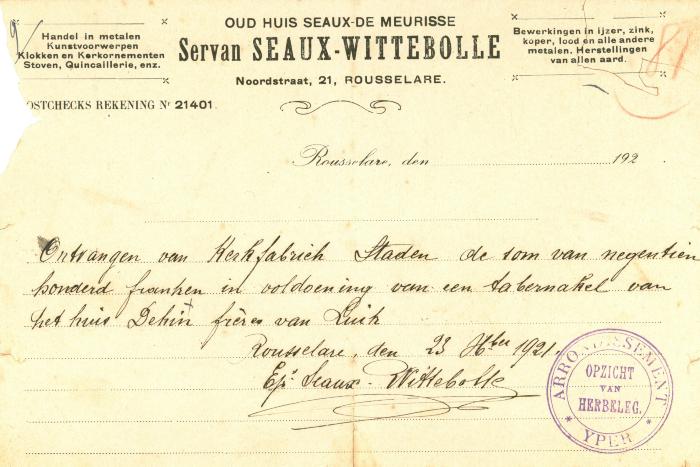 OUD HUIS SEAUX-DE MEURISSE
Servan SEAUX-WITTEBOLLE
Noordstraat, 21, ROUSSELARE.
Handel in metalen
Kunstvoorwerpen
Klokken en Kerkornementen
Stoven, Quincaillerie, enz.
Bewerkingen in ijzer, zink,
koper, lood en alle andere
metalen. Herstellingen
van allen aard.
OSTCHECKS REKENING Nr 21401
Rousselare, den 192
Ontvangen van Kerkfabriek Staden de som van negentien
honderd franken in voldoening van een tabernakel van
het huis Dehin frères van Luik
Rousselare, den 23 Xber 1921
Seaux-Wittebolle
ARRONDISSEMENT
OPZICHT
VAN
HERBELEG.
* YPER *